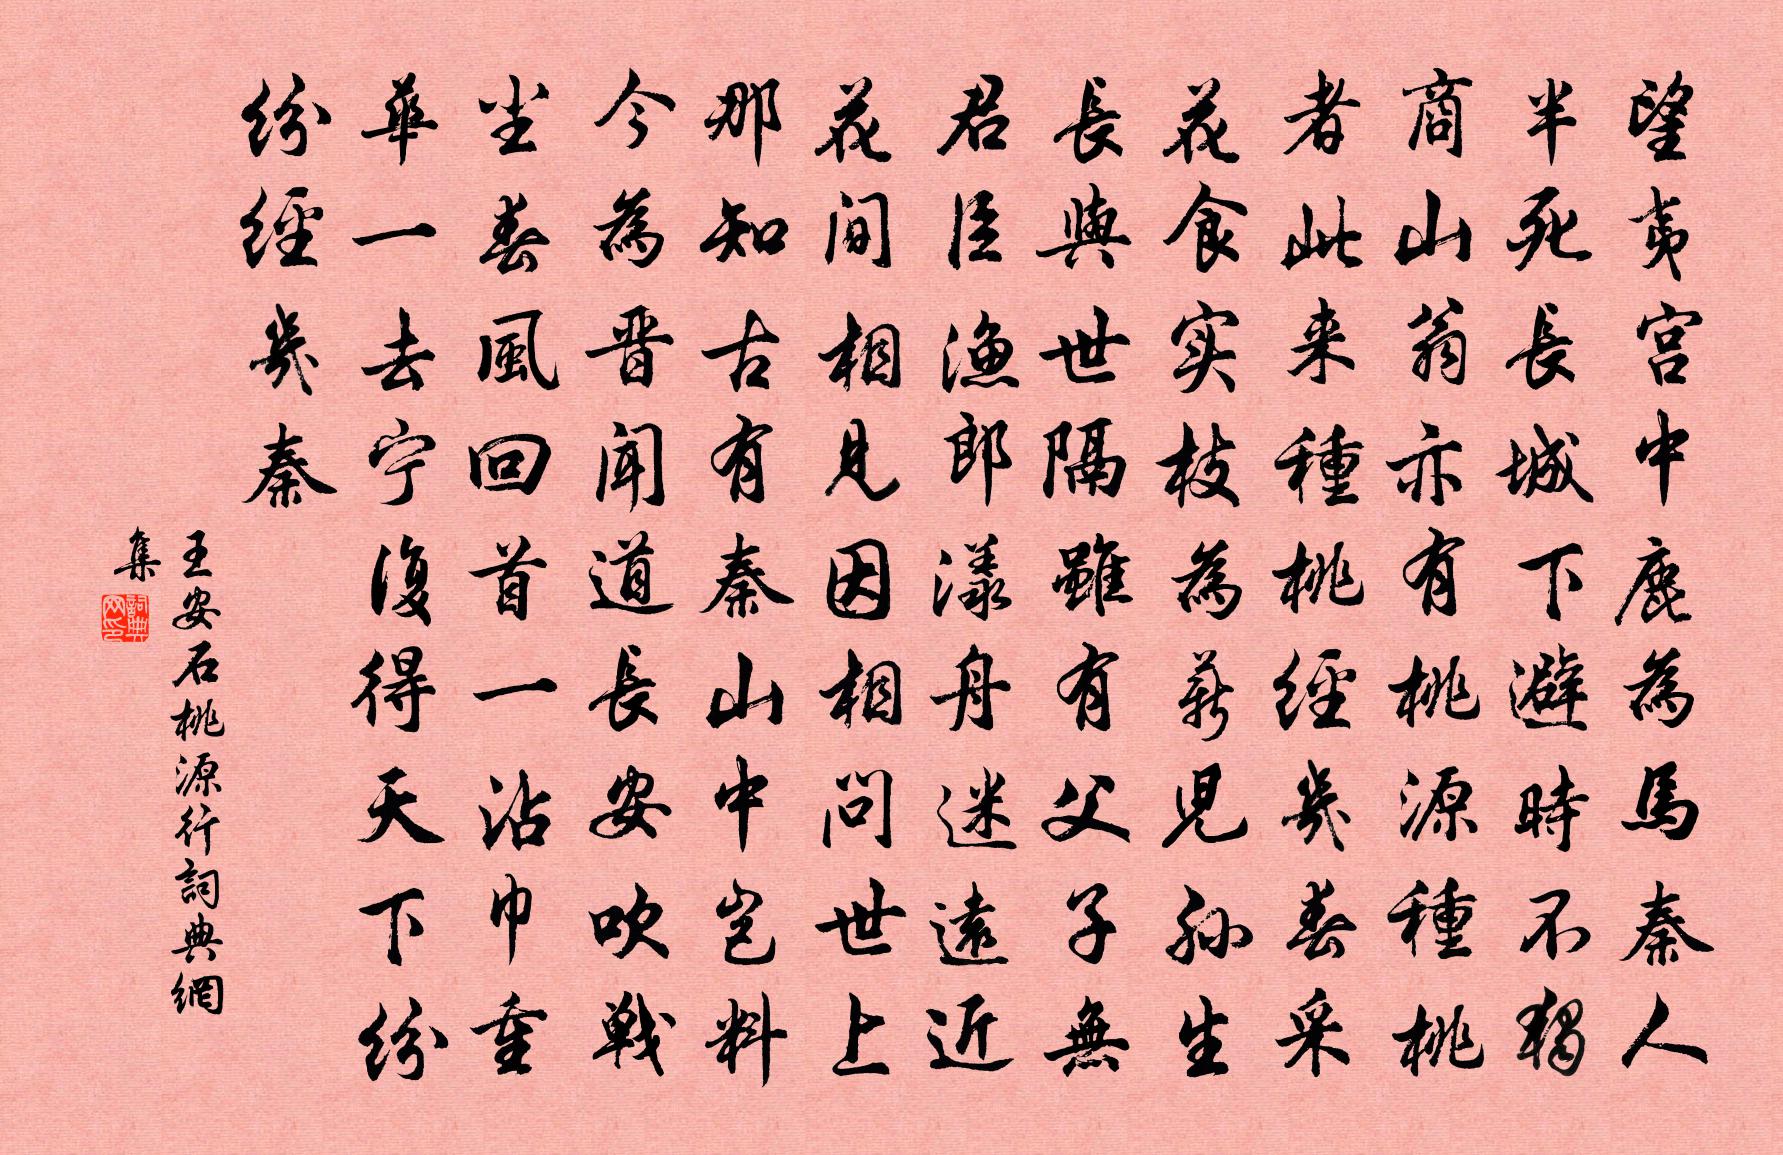 望夷宮中鹿為馬秦人
半死長城下避時不獨
商山翁亦有桃源種桃
者此来種桃經幾春采
花食实枝為薪兒孫生
長與世隔雖有父子無
君臣漁郎漾舟迷遠近
花間相見因相問世上
那知古有秦山中豈料
今為晋聞道長安吹戰
尘春風回首一沾巾重
華一去宁復得天下紛
紛經幾秦
王安石桃源行詞典網
集
詞典
网印